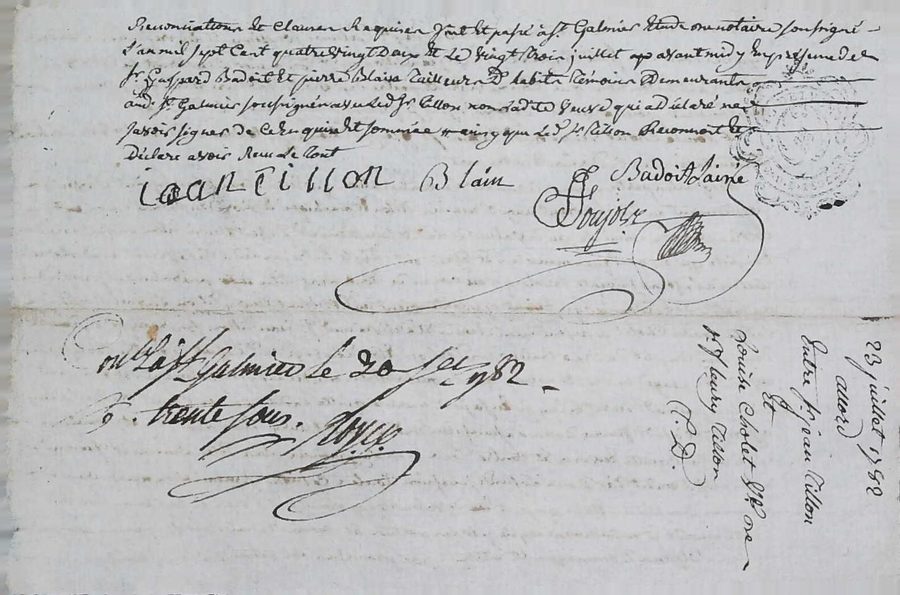 Renonciations et Clauses Requises fait et passé a St Galmier Etude du notaire soussigné
L'an mil sept Cent quatre vingt Deux et Le vingt trois juillet apavant midy En presence de
Sr Gaspard Badoit et pierre Blain tailleur D'habits temoins Demeurants
aud. St Galmier soussignés avec led Sr tillon non Ladite veuve qui a declaré ne
savoir signer de ce Enquise et sommée ainsy que Led. Sr tillon Reconnoit et
Declare avoir Recu Le tout
ioan Tillon Blain Badoit Lainé
Poujol
a St Galmier le 20 1782
trente sous.
23 juillet 1782
accord
Entre Sr jean tillon
Et
Louise Cholet Vve de
Sr fleury tillon